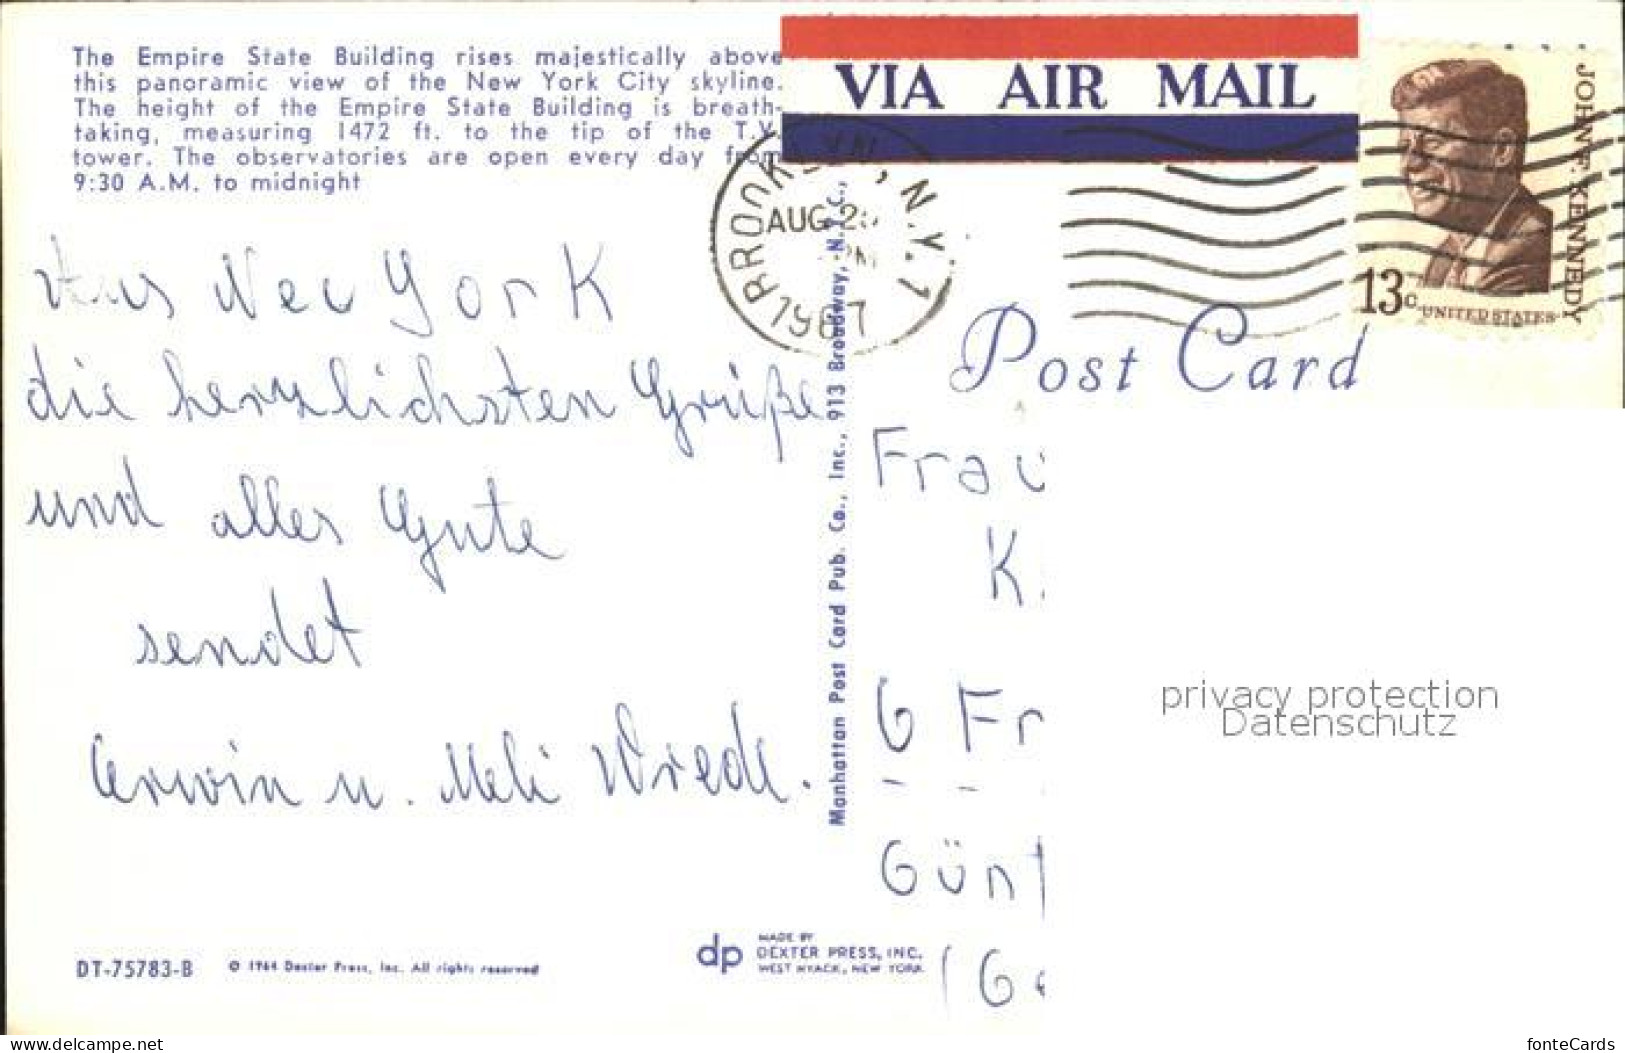 The Empire State Building rises majestically above
this panoramic view of the New York City skyline.
The height of the Empire State Building is breath-
taking, measuring 1472 ft. to the tip of the T.V.
tower. The observatories are open every day from
9:30 A.M. to midnight
VIA AIR MAIL
BROOKLYN, N.Y. 1
AUG
PM
1967
JOHN F. KENNEDY
13c
UNITED STATES
Post Card
Aus New York
die herzlichsten Grüße
und alles Gute
sendet
Erwin u. Meli Wrede.
Manhattan Post Card Pub. Co., Inc., 913 Broadway, N.Y.C.,
Frau
K.
6 Fr
Günt
(Ge
privacy protection
Datenschutz
DT-75783-B
© 1964 Dexter Press, Inc. All rights reserved
dp
MADE BY
DEXTER PRESS, INC.
WEST NYACK, NEW YORK
www.delcampe.net
fonteCards